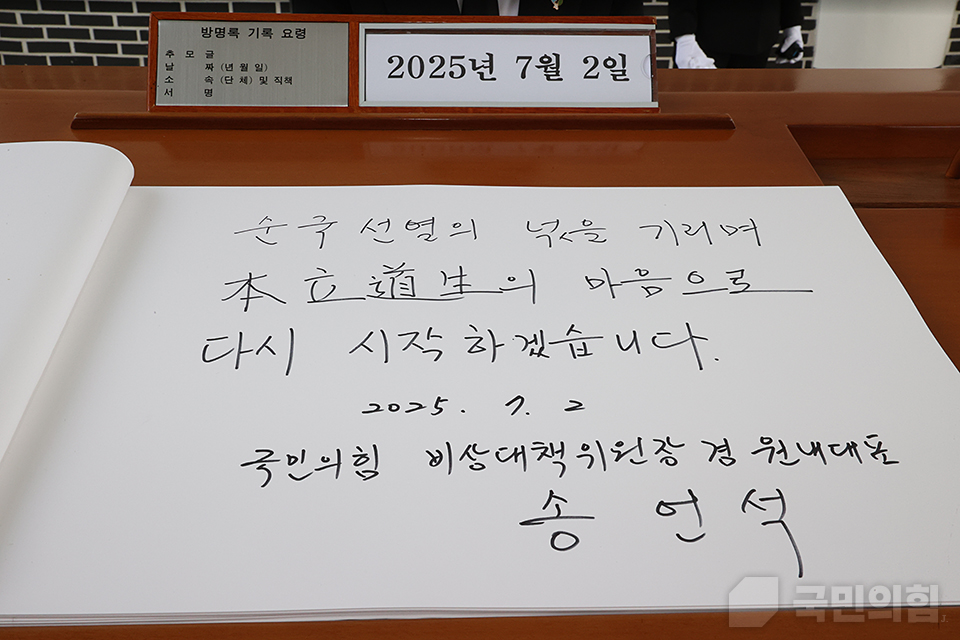 방명록 기록 요령
추 모 글
날 짜 (년 월 일)
소 속 (단 체) 및 직책
서 명
2025년 7월 2일
순국선열의 넋을 기리며
本立道生의 마음으로
다시 시작하겠습니다.
2025. 7. 2
국민의힘 비상대책위원장 겸 원내대표
송 언 석
국민의힘